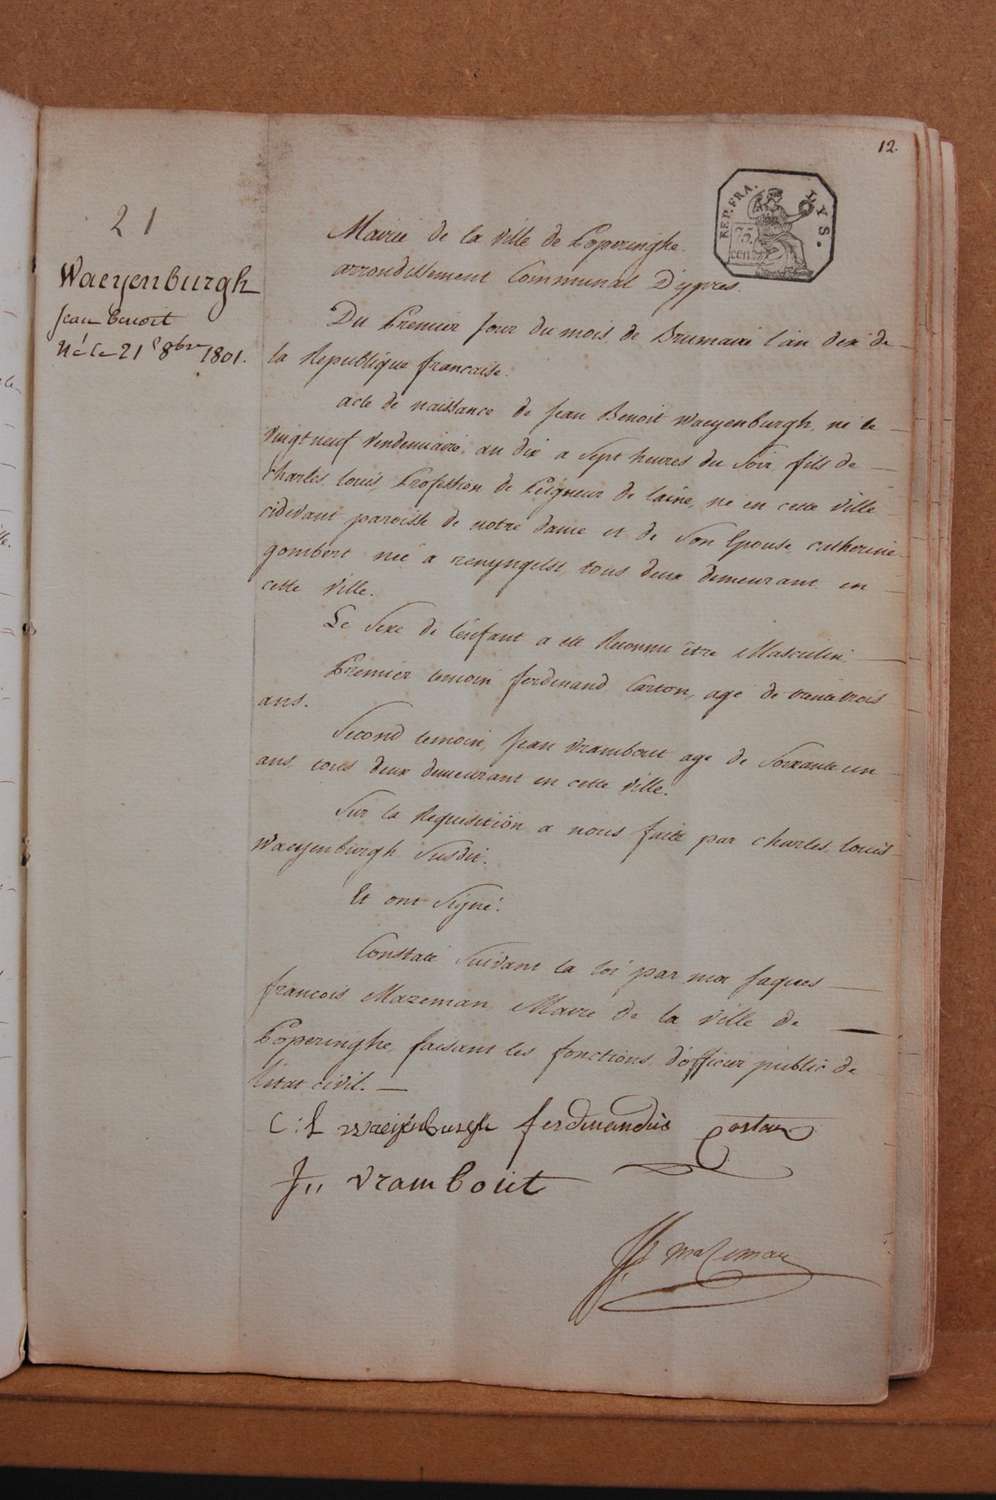 12.
REP. FRA. LYS.
75.
cent
21
Waeyenburgh
Jean Benoit
Né le 21 8bre 1801.
Mairie de la ville de Poperinghe.
arrondissement Communal D'ypres.
Du Premier Jour du mois de Brumaire l'an dix de
la Republique francaise.
acte de naissance de Jean Benoit Waeyenburgh, né le
vingt neuf Vendemiaire, an dix a Sept heures du Soir fils de
Charles Louis, Profession de Peigneur de laine, né en cette ville
cidevant paroisse de notre dame et de Son Epouse, catherine
gombert née a renyngelst, tous deux demeurant en
cette ville.
Le Sexe de l'enfant a été Reconnu être Masculin.
Premier temoin ferdinand Carton, age de trente trois
ans.
Second temoin, Jean Vrambout age de Soixante un
ans, tous deux demeurant en cette ville.
Sur la Requisition a nous faite par Charles Louis
Waeyenburgh Susdit.
Et ont Signé.
Constaté Suivant la loi par moi Jaques
francois Mazeman, Maire de la ville de
Poperinghe, faisant les fonctions d'officier public de
l'etat civil.
C: L Waeijenburgh ferdinandus Carton
J,, Vrambout
JF mazeman